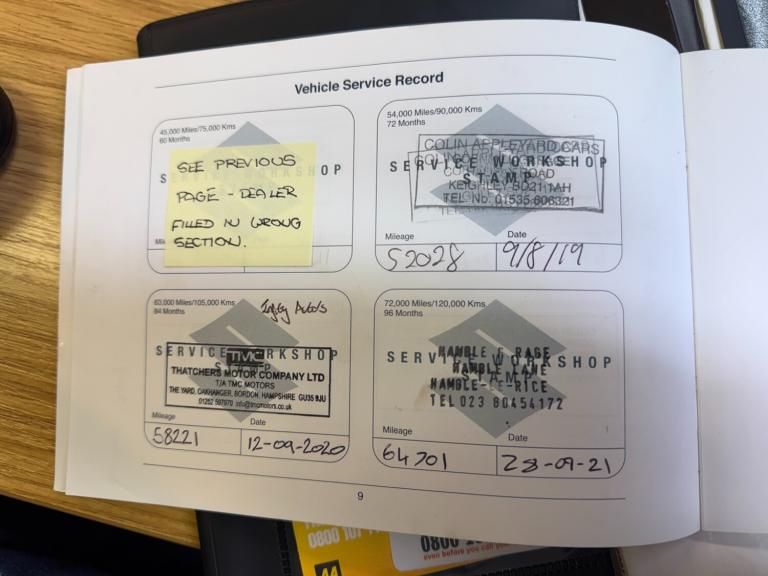 Vehicle Service Record
45,000 Miles/75,000 Kms
60 Months
SEE PREVIOUS
PAGE - DEALER
FILLED IN WRONG
SECTION.
S
H O P
54,000 Miles/90,000 Kms
72 Months
COLIN APPLEYARD CARS
SERVICE WORKSHOP
STAMP
KEIGHLEY BD21 1AH
TEL No. 01535 606321
Mileage
Date
52028
9/8/19
63,000 Miles/105,000 Kms
84 Months
SERVICE WORKSHOP
TMC
THATCHERS MOTOR COMPANY LTD
T/A TMC MOTORS
THE YARD, OAKHANGER, BORDON, HAMPSHIRE GU35 9JU
01252 597970 info@tmcmotors.co.uk
Mileage
Date
58221
12-09-2020
72,000 Miles/120,000 Kms
96 Months
SERVICE WORKSHOP
HAMBLE LANE
HAMBLE-LE-RICE
TEL 023 80454172
Mileage
Date
64701
28-09-21
9
0800
0800
even before you call
AA